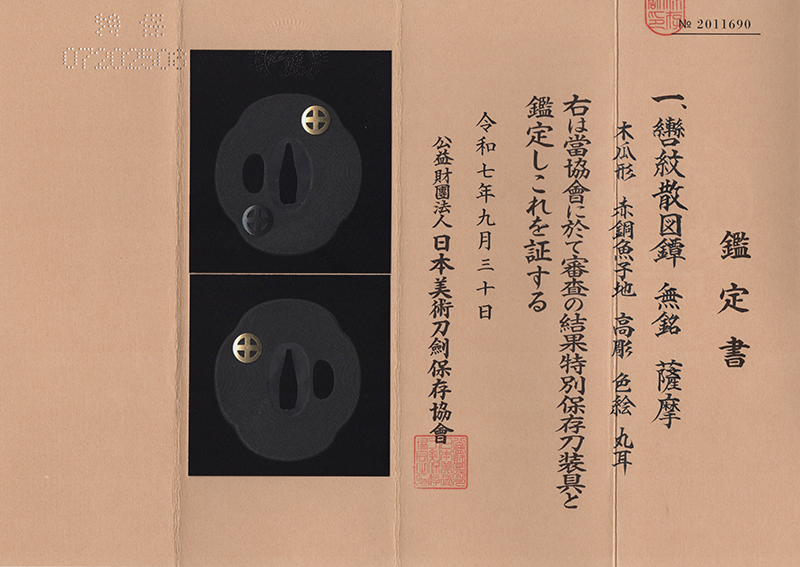 № 2011690
鑑定書
一、轡紋散図鐔 無銘 薩摩
木瓜形 赤銅魚子地 高彫 色絵 丸耳
右は當協會に於て審査の結果特別保存刀装具と
鑑定しこれを証する
令和七年九月三十日
公益財團法人 日本美術刀劍保存協會
07202508